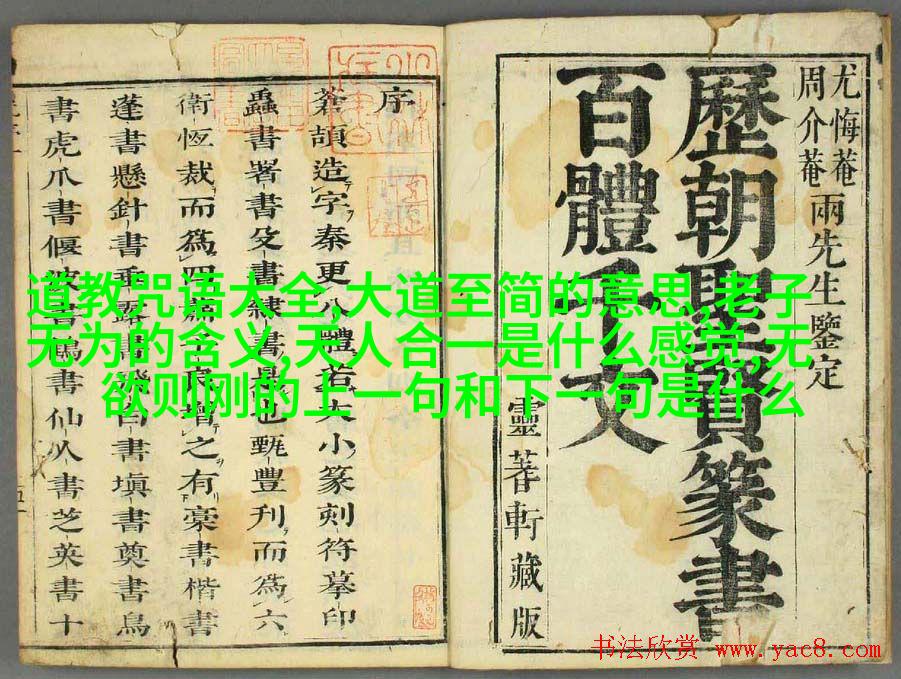 尤悔菴
周介菴
兩先生鑒定
歷朝聖賢篆書
百體千文
靈蓍軒藏版
序
蒼頡造字秦更八體若大小篆刻符摹印
蟲書署書殳書隸書是也甄豊刋而為六
衛恆裁而為四蕭子良增之有藁書楷書
蓬書懸針書垂露書飛白書填書奠書鳥
書虎爪書偃波書鶴書仙人書芝英書十
道教咒语大全,大道至简的意思,老子
无为的含义,天人合一是什么感觉,无
欲则刚的上一句和下一句是什么
书法欣赏 www.yac8.com